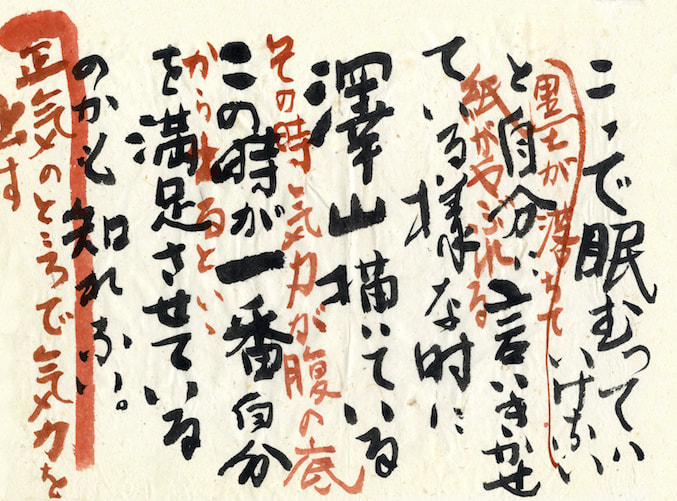 こゝで眠むってハ
いけない
墨が落ちて
と自分に言いきかせ
紙がやぶれる
ている様な時に
澤山描いている
その時気力が腹の底
この時が一番自分
から出るといゝ
を満足させている
のかも知れない。
正気のところで気力を
出す